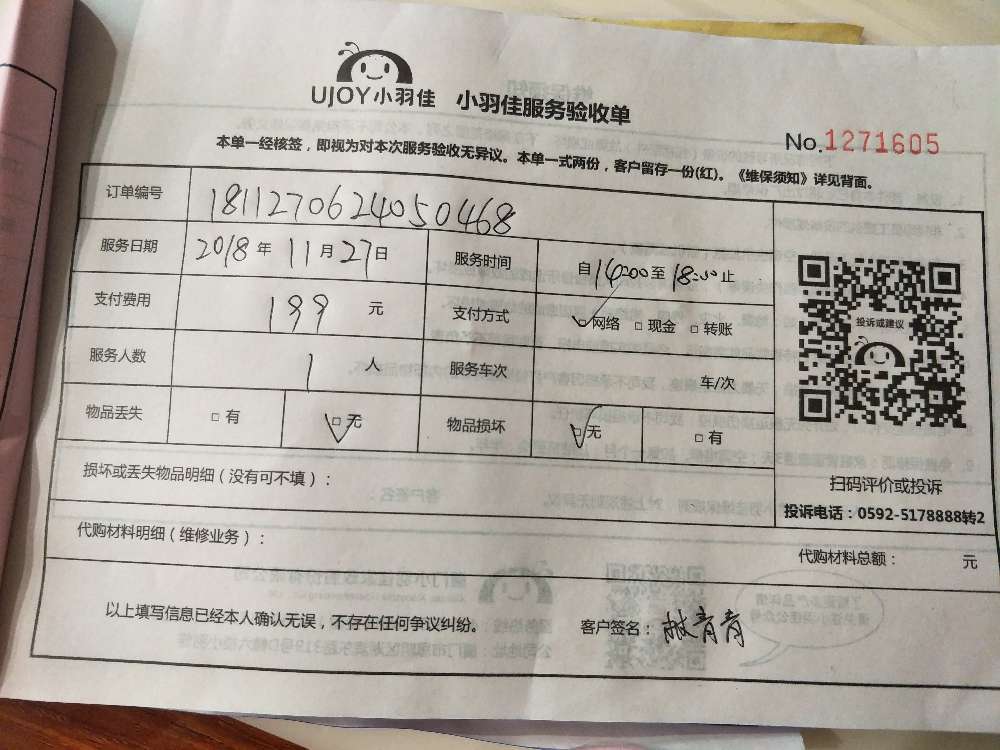 UJOY小羽佳 小羽佳服务验收单
No.1271605
本单一经核签，即视为对本次服务验收无异议。本单一式两份，客户留存一份(红)。《维保须知》详见背面。
订单编号 1811270624050468
服务日期 2018年11月27日 服务时间 自14:00至18:00止
支付费用 199元 支付方式 □网络 □现金 □转账
服务人数 1人 服务车次 车/次
物品丢失 □有 □无 物品损坏 □无 □有
投诉或建议
扫码评价或投诉
投诉电话：0592-5178888转2
损坏或丢失物品明细（没有可不填）：
代购材料明细（维修业务）：
代购材料总额： 元
以上填写信息已经本人确认无误，不存在任何争议纠纷。 客户签名：林青青